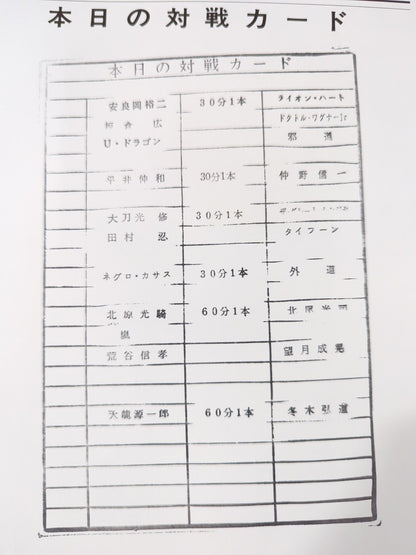 本日の対戦カード
本日の対戦カード
安良岡裕二 30分1本 ライオン・ハート
板倉 広 ドクトル・ワグナーJr
U・ドラゴン 邪道
平井伸和 30分1本 仲野信一
大刀光 修 30分1本
田村 忍 タイフーン
ネグロ・カサス 30分1本 外道
北原光騎 60分1本
嵐
荒谷信孝 望月成晃
天龍源一郎 60分1本 冬木弘道